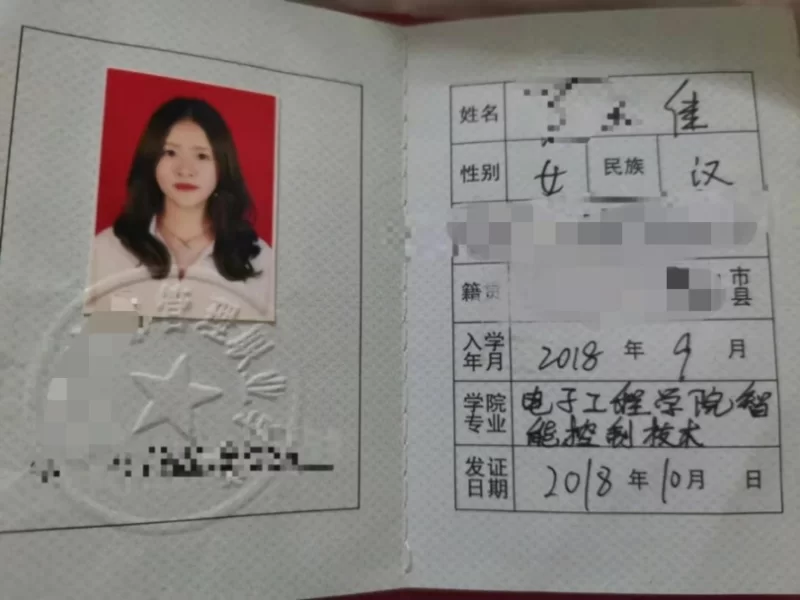 管理职业
姓名 佳
性别 女 民族 汉
籍贯 市县
入学年月 2018 年 9 月
学院专业 电子工程学院智
能控制技术
发证日期 2018 年 10 月 日